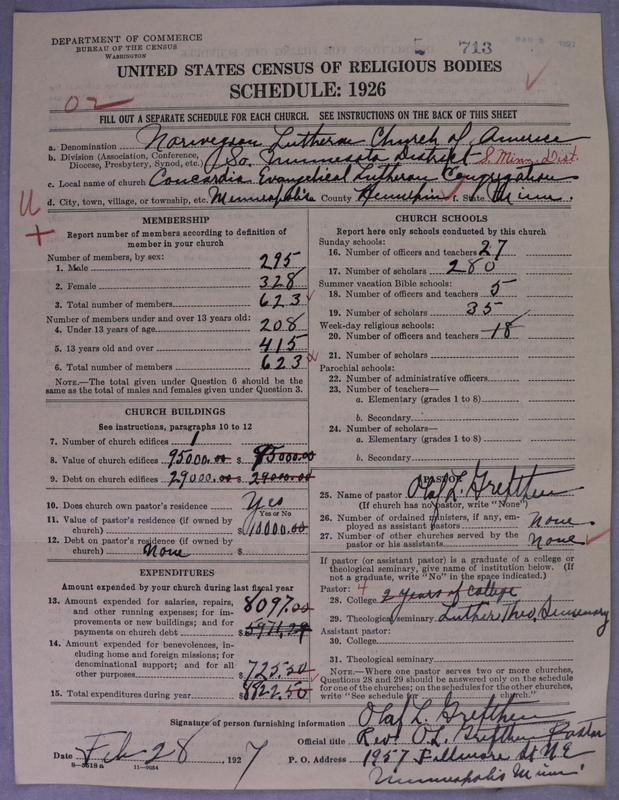 DEPARTMENT OF COMMERCE
BUREAU OF THE CENSUS
WASHINGTON
713
UNITED STATES CENSUS OF RELIGIOUS BODIES
SCHEDULE: 1926
02
FILL OUT A SEPARATE SCHEDULE FOR EACH CHURCH. SEE INSTRUCTIONS ON THE BACK OF THIS SHEET
a. Denomination Norwegian Lutheran Church of America
b. Division (Association, Conference, Diocese, Presbytery, Synod, etc.) So. Minnesota District S. Minn. Dist.
c. Local name of church Concordia Evangelical Lutheran Congregation
d. City, town, village, or township, etc. Minneapolis County Hennepin f. State Minn.
MEMBERSHIP
Report number of members according to definition of
member in your church
Number of members, by sex:
1. Male 295
2. Female 328
3. Total number of members 623
Number of members under and over 13 years old:
4. Under 13 years of age 208
5. 13 years old and over 415
6. Total number of members 623
NOTE.—The total given under Question 6 should be the
same as the total of males and females given under Question 3.
CHURCH BUILDINGS
See instructions, paragraphs 10 to 12
7. Number of church edifices 1
8. Value of church edifices 95000.00 $ 95000.00
9. Debt on church edifices 29000.00 $ 29000.00
10. Does church own pastor's residence Yes
Yes or No
11. Value of pastor's residence (if owned by
church) $10000.00
12. Debt on pastor's residence (if owned by
church) None $
EXPENDITURES
Amount expended by your church during last fiscal year
13. Amount expended for salaries, repairs,
and other running expenses; for im-
provements or new buildings; and for
payments on church debt $ 8097.00
14. Amount expended for benevolences, in-
cluding home and foreign missions; for
denominational support; and for all
other purposes $ 725.50
15. Total expenditures during year $ 8822.50
CHURCH SCHOOLS
Report here only schools conducted by this church
Sunday schools:
16. Number of officers and teachers 27
17. Number of scholars 280
Summer vacation Bible schools:
18. Number of officers and teachers 5
19. Number of scholars 35
Week-day religious schools:
20. Number of officers and teachers 18
21. Number of scholars
Parochial schools:
22. Number of administrative officers
23. Number of teachers—
a. Elementary (grades 1 to 8)
b. Secondary
24. Number of scholars—
a. Elementary (grades 1 to 8)
b. Secondary
PASTOR
25. Name of pastor Olaf L.
(If church has no pastor, write "None")
26. Number of ordained ministers, if any, em-
ployed as assistant pastors None
27. Number of other churches served by the
pastor or his assistants None
If pastor (or assistant pastor) is a graduate of a college or
theological seminary, give name of institution below. (If
not a graduate, write "No" in the space indicated.)
Pastor: 4
28. College 2 years of College
29. Theological seminary Luther Theo. Seminary
Assistant pastor:
30. College
31. Theological seminary
NOTE.—Where one pastor serves two or more churches,
Questions 28 and 29 should be answered only on the schedule
for one of the churches; on the schedules for the other churches,
write "See schedule for church."
Signature of person furnishing information Olaf L.
Official title Rev. O.L. Pastor
Date Feb 28, 1927 P. O. Address 1957 Fillmore St NE
8—5618 a 11—9034
Minneapolis Minn.